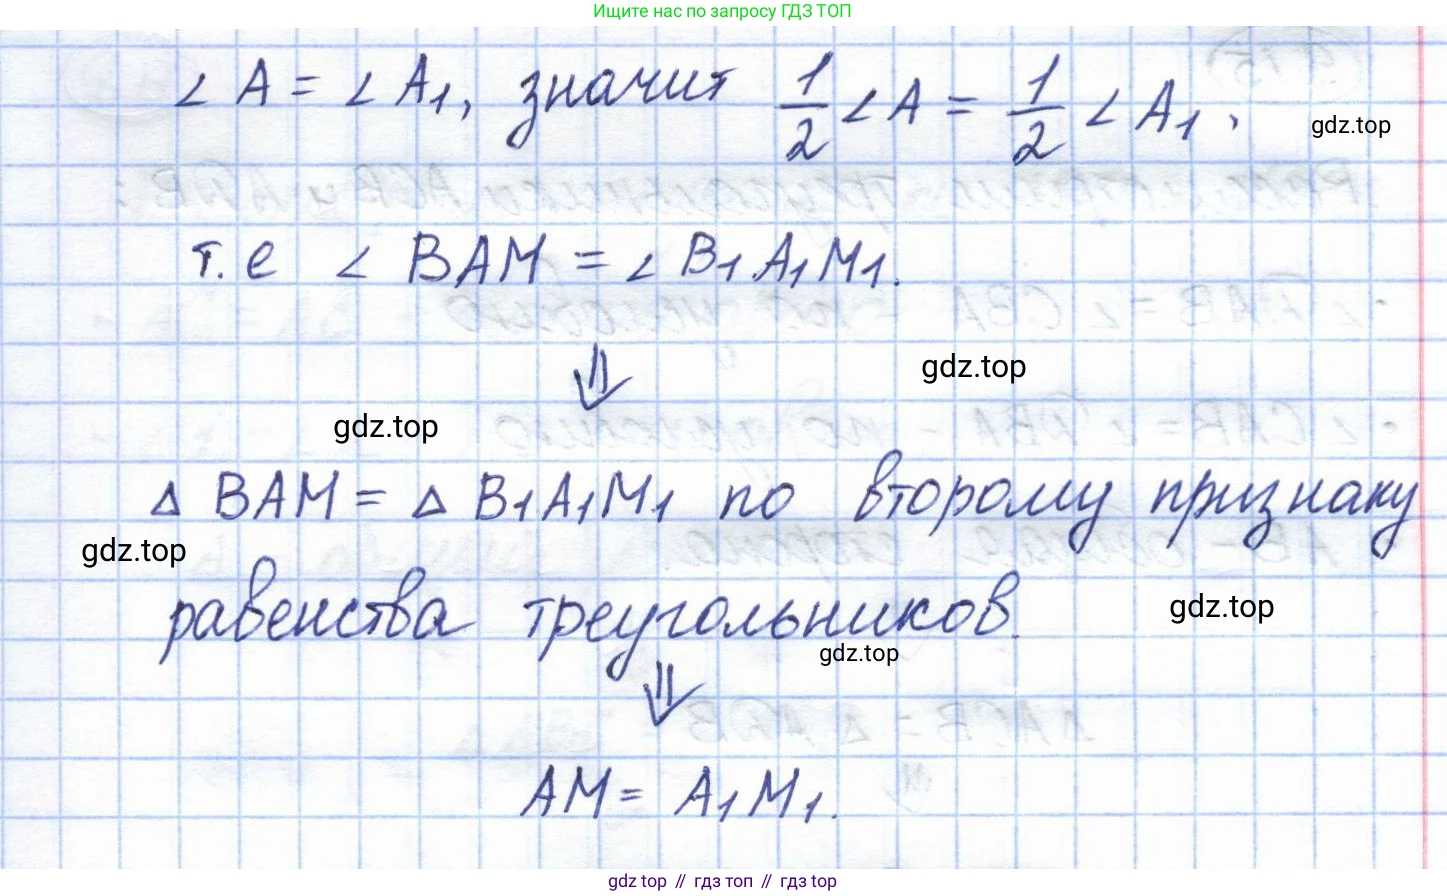 Ищите нас по запросу ГДЗ ТОП
∠ A = ∠ A₁, значит 1/2 ∠ A = 1/2 ∠ A₁,
gdz.top
т.е ∠ BAM = ∠ B₁A₁M₁.
⇓
gdz.top
gdz.top
Δ BAM = Δ B₁A₁M₁ по второму признаку
gdz.top
равенства треугольников.
gdz.top
gdz.top
⇓
AM = A₁M₁.
gdz top // гдз топ // гдз top